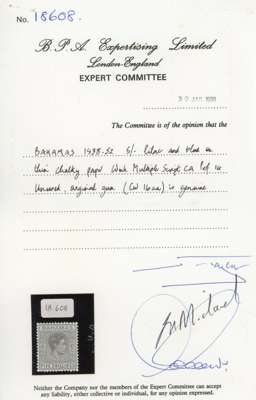 No. 18608.
B. P. A. Expertising Limited
London-England
EXPERT COMMITTEE
JAN
The Committee is of the opinion that the
BAHAMAS 1938-52 5/- lilac and blue on
thin chalky paper Wmk Multiple Script CA Perf 14
Unused, original gum (SG 16) is genuine
18 608
BAHAMAS
Neither the Company nor the members of the Expert Committee can accept
any liability, either collective or individual, for any opinion expressed.